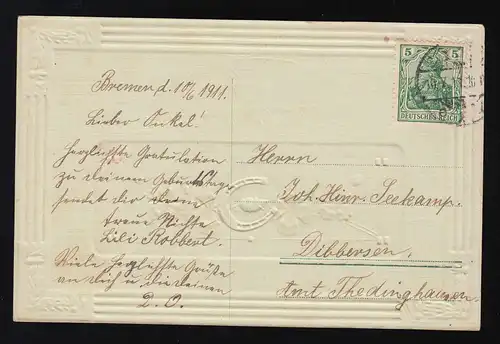 Bremen d. 10/6 1911.
Lieber Onkel!
Herzlichste Gratulation
zu deinem Geburtstage
sendet dir deine
treue Nichte
Lili Robbert.
Viele herzlichste Grüße
an dich u die deinen
D. O.
5 5
DEUTSCHES REICH
Herrn
Joh. Hinr. Seekamp.
Dibbersen.
Amt Thedinghausen.